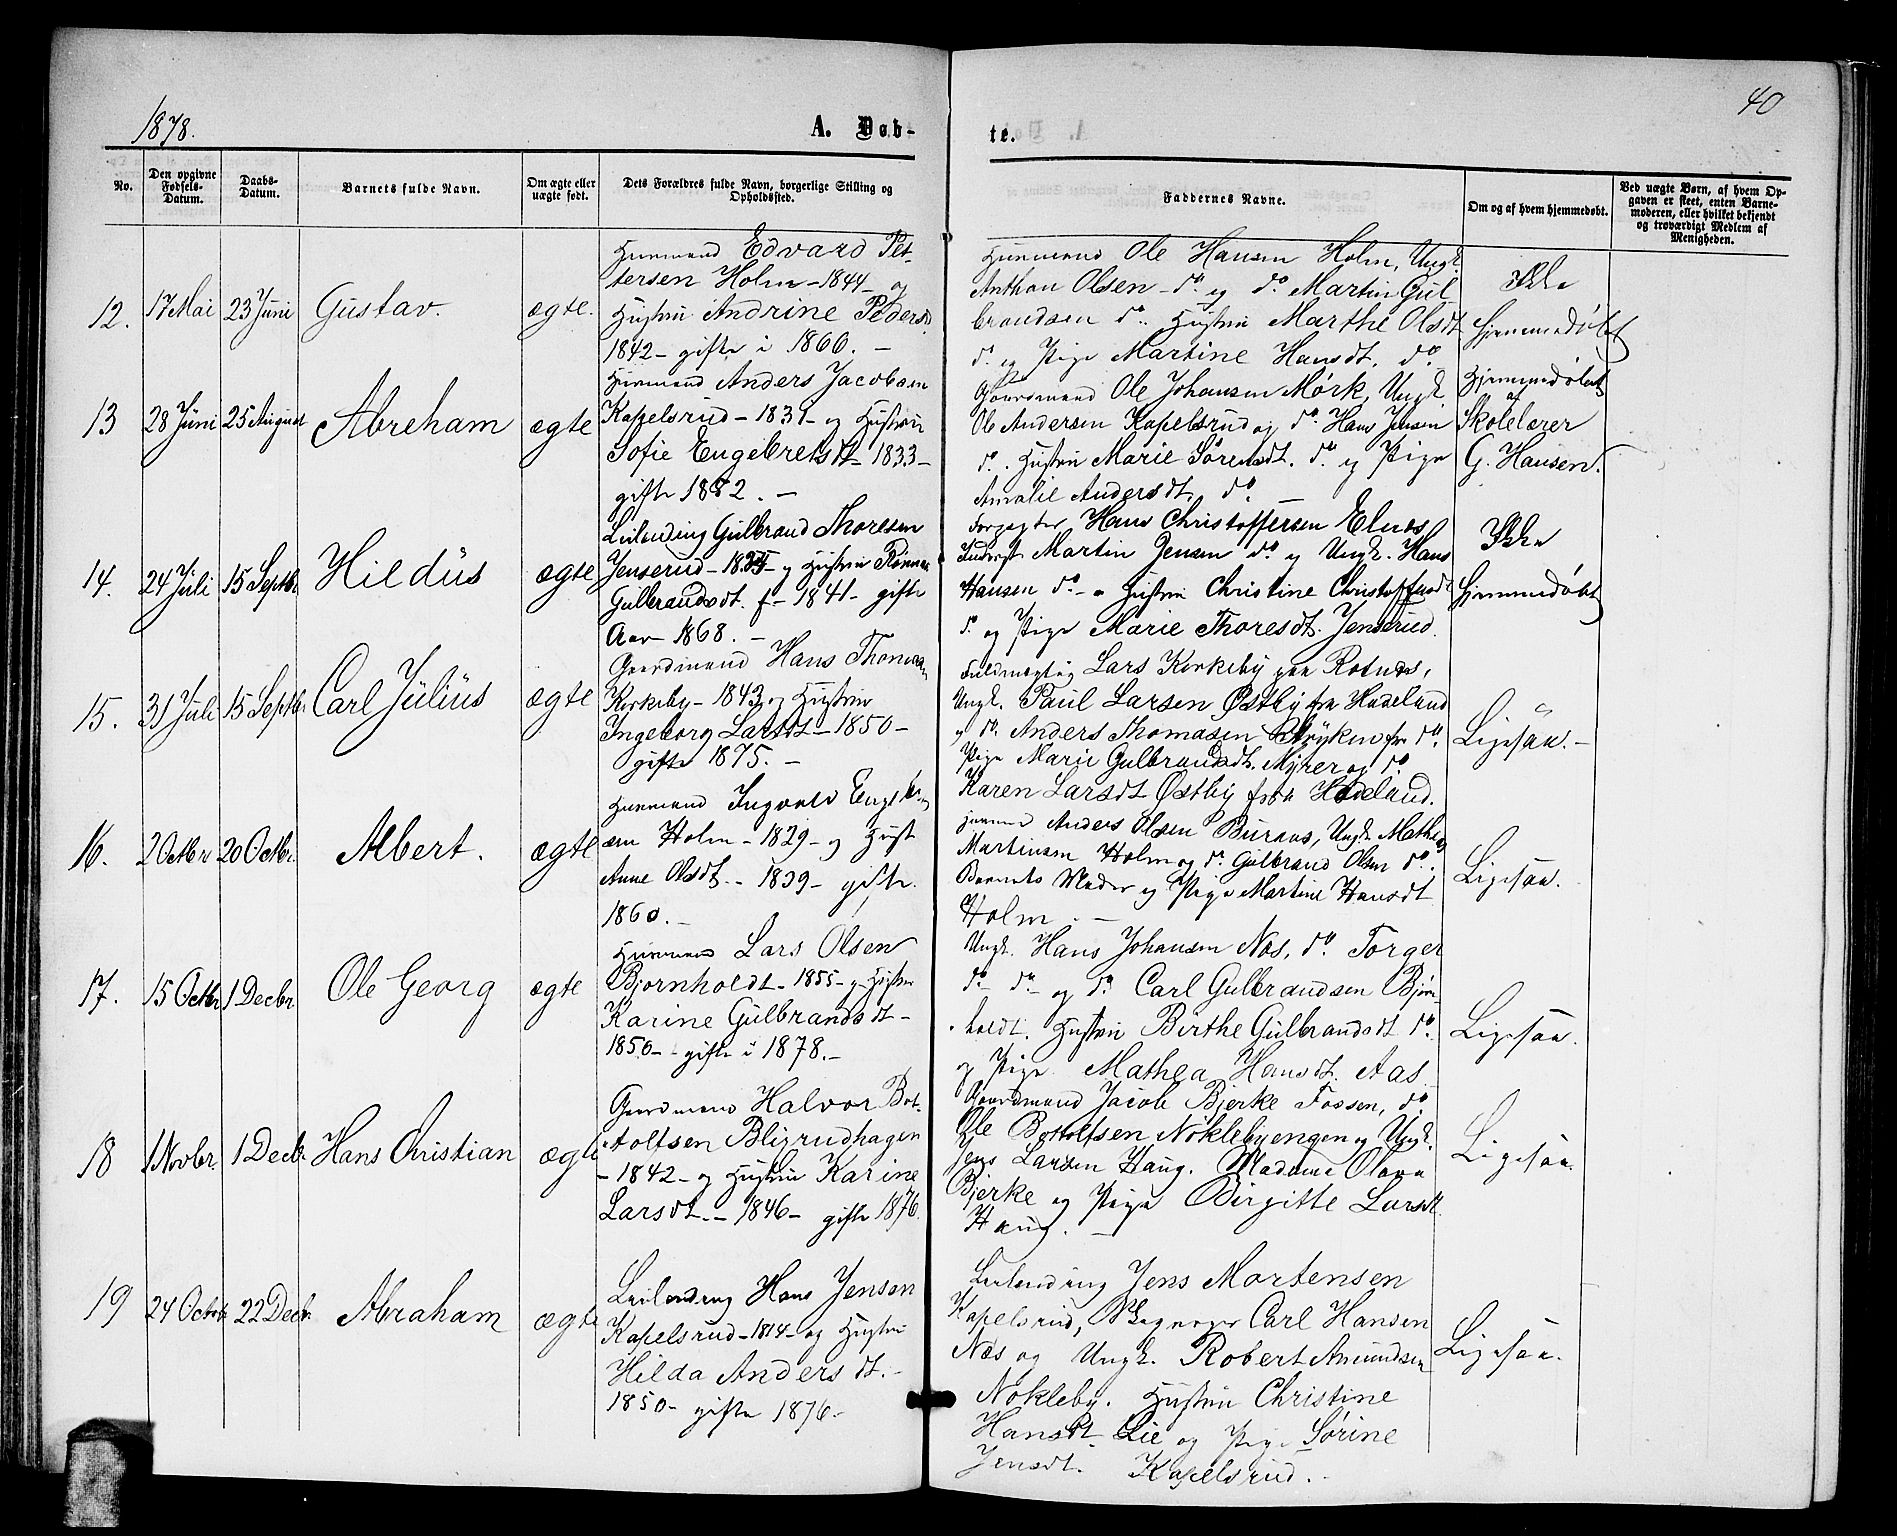 1878.
A. Døb-
te.
40
No.
Den opgivne Fødsels-Datum.
Daabs-Datum.
Barnets fulde Navn.
Om ægte eller uægte født.
Dets Forældres fulde Navn, borgerlige Stilling og Opholdssted.
Faddernes Navne.
Om og af hvem hjemmedøbt.
Ved uægte Børn, af hvem Opgaven er skeet, enten Barnemoderen, eller hvilket bekjendt og troværdigt Medlem af Menigheden.
12. 17 Mai 23 Juni Gustav. ægte.
Huusmand Edvard Pet-
tersen Holm – 1844 – og
Hustru Andrine Pedersdt
1842 – gifte i 1860. –
Huusmand Ole Hansen Holm, Ungk.
Anthon Olsen – do. og do. Martin Gul-
brandsen do. Hustru Marthe Olsdt
do. og Pige Martine Hansdt. do.
Ikke
Hjemmedøbt
13 28 Juni 25 August Abreham ægte
Huusmand Anders Jacobsen
Kapelsrud – 1831 – og Hustru
Sofie Engebretsdt – 1833 –
gifte 1882. –
Gaardmand Ole Johansen Mørk, Ungk.
Ole Andersen Kapelsrud og do. Hans Jensen
do. Hustru Marie Sørensdt. do. og Pige
Amalie Andersdt. do.
Hjemmedøbt
af
Skolelærer
G. Hansen.
14. 24 Juli 15 Septbr Hildus ægte
Leilending Gulbrand Thoresen
Jenserud – og Hustru
Gulbrandsdt. f – 1841 – gifte
Aar 1868. –
Forpagter Hans Christoffersen Elnes
Martin Jensen do. og Ungk. Hans
Hansen do. – Hustru Christine Christoffersdt
do. og Pige Marie Thoresdt. Jenserud.
Ikke
Hjemmedøbt
15. 31 Juli 15 Septbr Carl Julius ægte
Gaardmand Hans Thomasen
Kirkeby – 1843 og Hustru
Ingeborg Larsdt – 1850 –
gifte 1875. –
Fuldmægtig Lars Kirkeby paa Rotnes,
Ungk. Paul Larsen Østby fra Hadeland
og do. Anders Thomasen Stryken fra do.
Pige Marie Gulbrandsdt. Myrer og do.
Karen Larsdt Østby fra Hadeland.
Ligesaa. –
16. 2 Octbr 20 Octbr. Albert. ægte
Huusmand Ingvald Engebret-
sen Holm – 1829 – og Hustr
Anne Olsdt. – 1839 – gifte.
1860. –
Anders Olsen Buraas, Ungk. Mathias
Martinsen Holm og do. Gulbrand Olsen do.
Barnets Moder og Pige Martine Hansdt
Holm. –
Ligesaa.
17. 15 Octbr 1 Decbr Ole Georg ægte
Huusmand Lars Olsen
Bjørnholdt – 1855 – og Hustru
Karine Gulbrandsdt –
1850 – gifte i 1878. –
Ungk. Hans Johansen Næs, do. Torger
do – do – og do. Carl Gulbrandsen Bjørn-
holdt. Hustru Birthe Gulbrandsdt do.
og Pige Mathea Hansdt. Aas
Ligesaa.
18 1 Novbr. 1 Decbr. Hans Christian ægte
Gaardmand Halvor Bot-
tolfsen Bligrudhagen
– 1842 – og Hustru Karine
Larsdt. – 1846 – gifte 1876.
Gaardmand Jacob Bjerke Fossen, do.
Ole Botholfsen Nøklebyengen og Ungk.
Jens Larsen Haug. Madame Olava
Bjerke og Pige Birgitte Larsdt
Haug. –
Ligesaa.
19 24 Octobr 22 Decbr. Abraham ægte
Leilending Hans Jensen
Kapelsrud – 1814 – og Hustru
Hilda Andersdt. –
1850 – gifte 1876 –
Leilending Jens Mortensen
Kapelsrud, Carl Hansen
Næs og Ungk. Robert Amundsen
Nøkleby. Hustru Christine
Hansdt. Lie og Pige Sørine
Jensdt. Kapelsrud. –
Ligesaa.